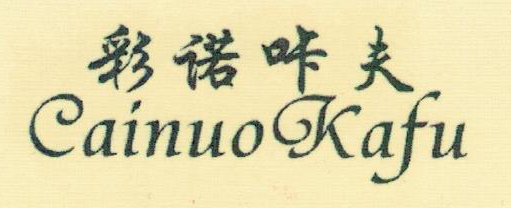 彩诺咔夫
Cainuo Kafu